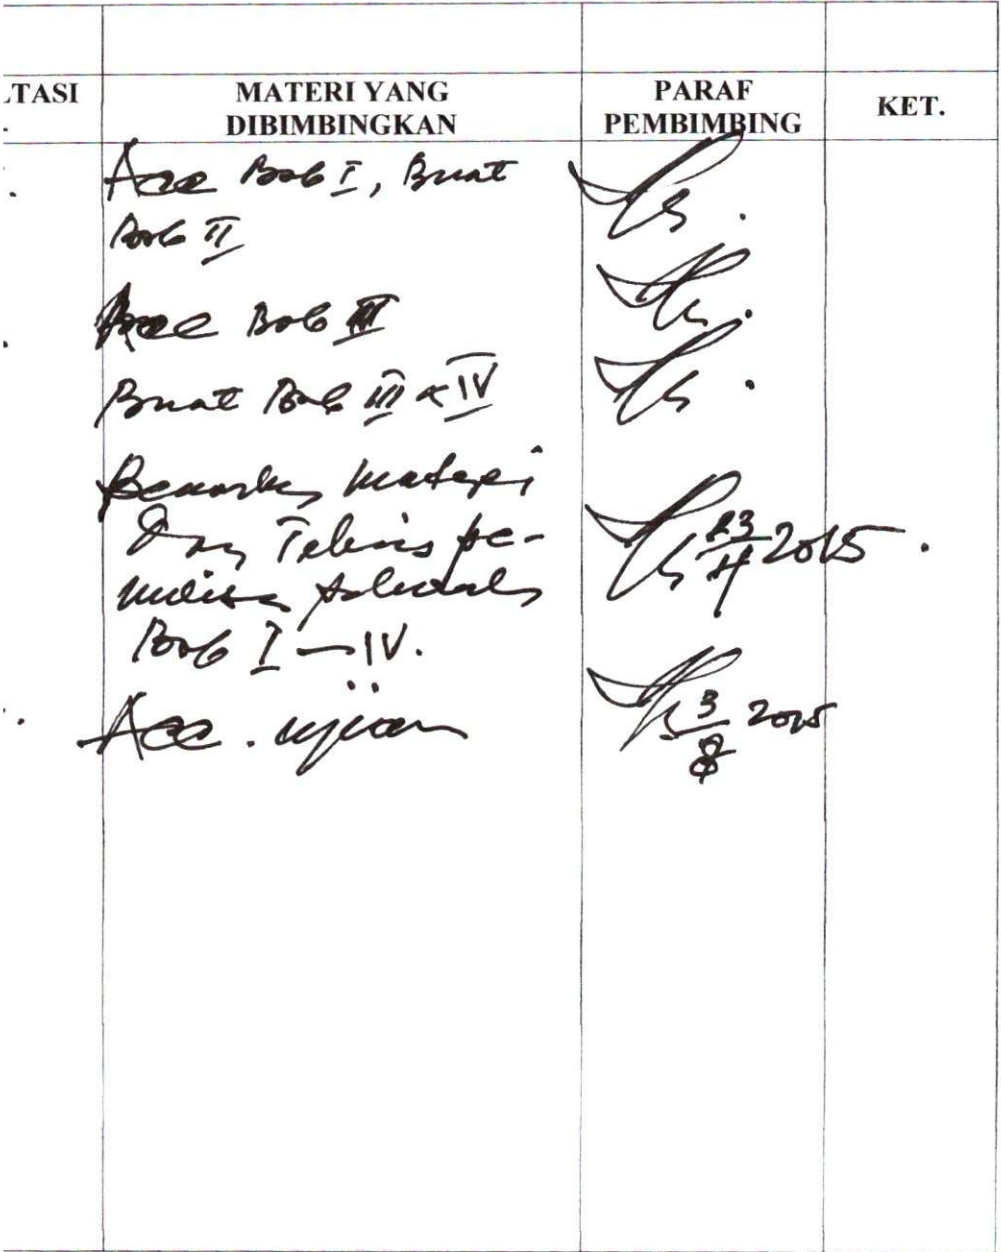 .TASI
MATERI YANG
DIBIMBINGKAN
PARAF
PEMBIMBING
KET.
Acc Bab I, Buat
Bab II
Acc Bab III
Buat Bab III & IV
materi
Teknis pe-
Bab I — IV.
23/4 2015.
Acc. ujian
3/8 2015